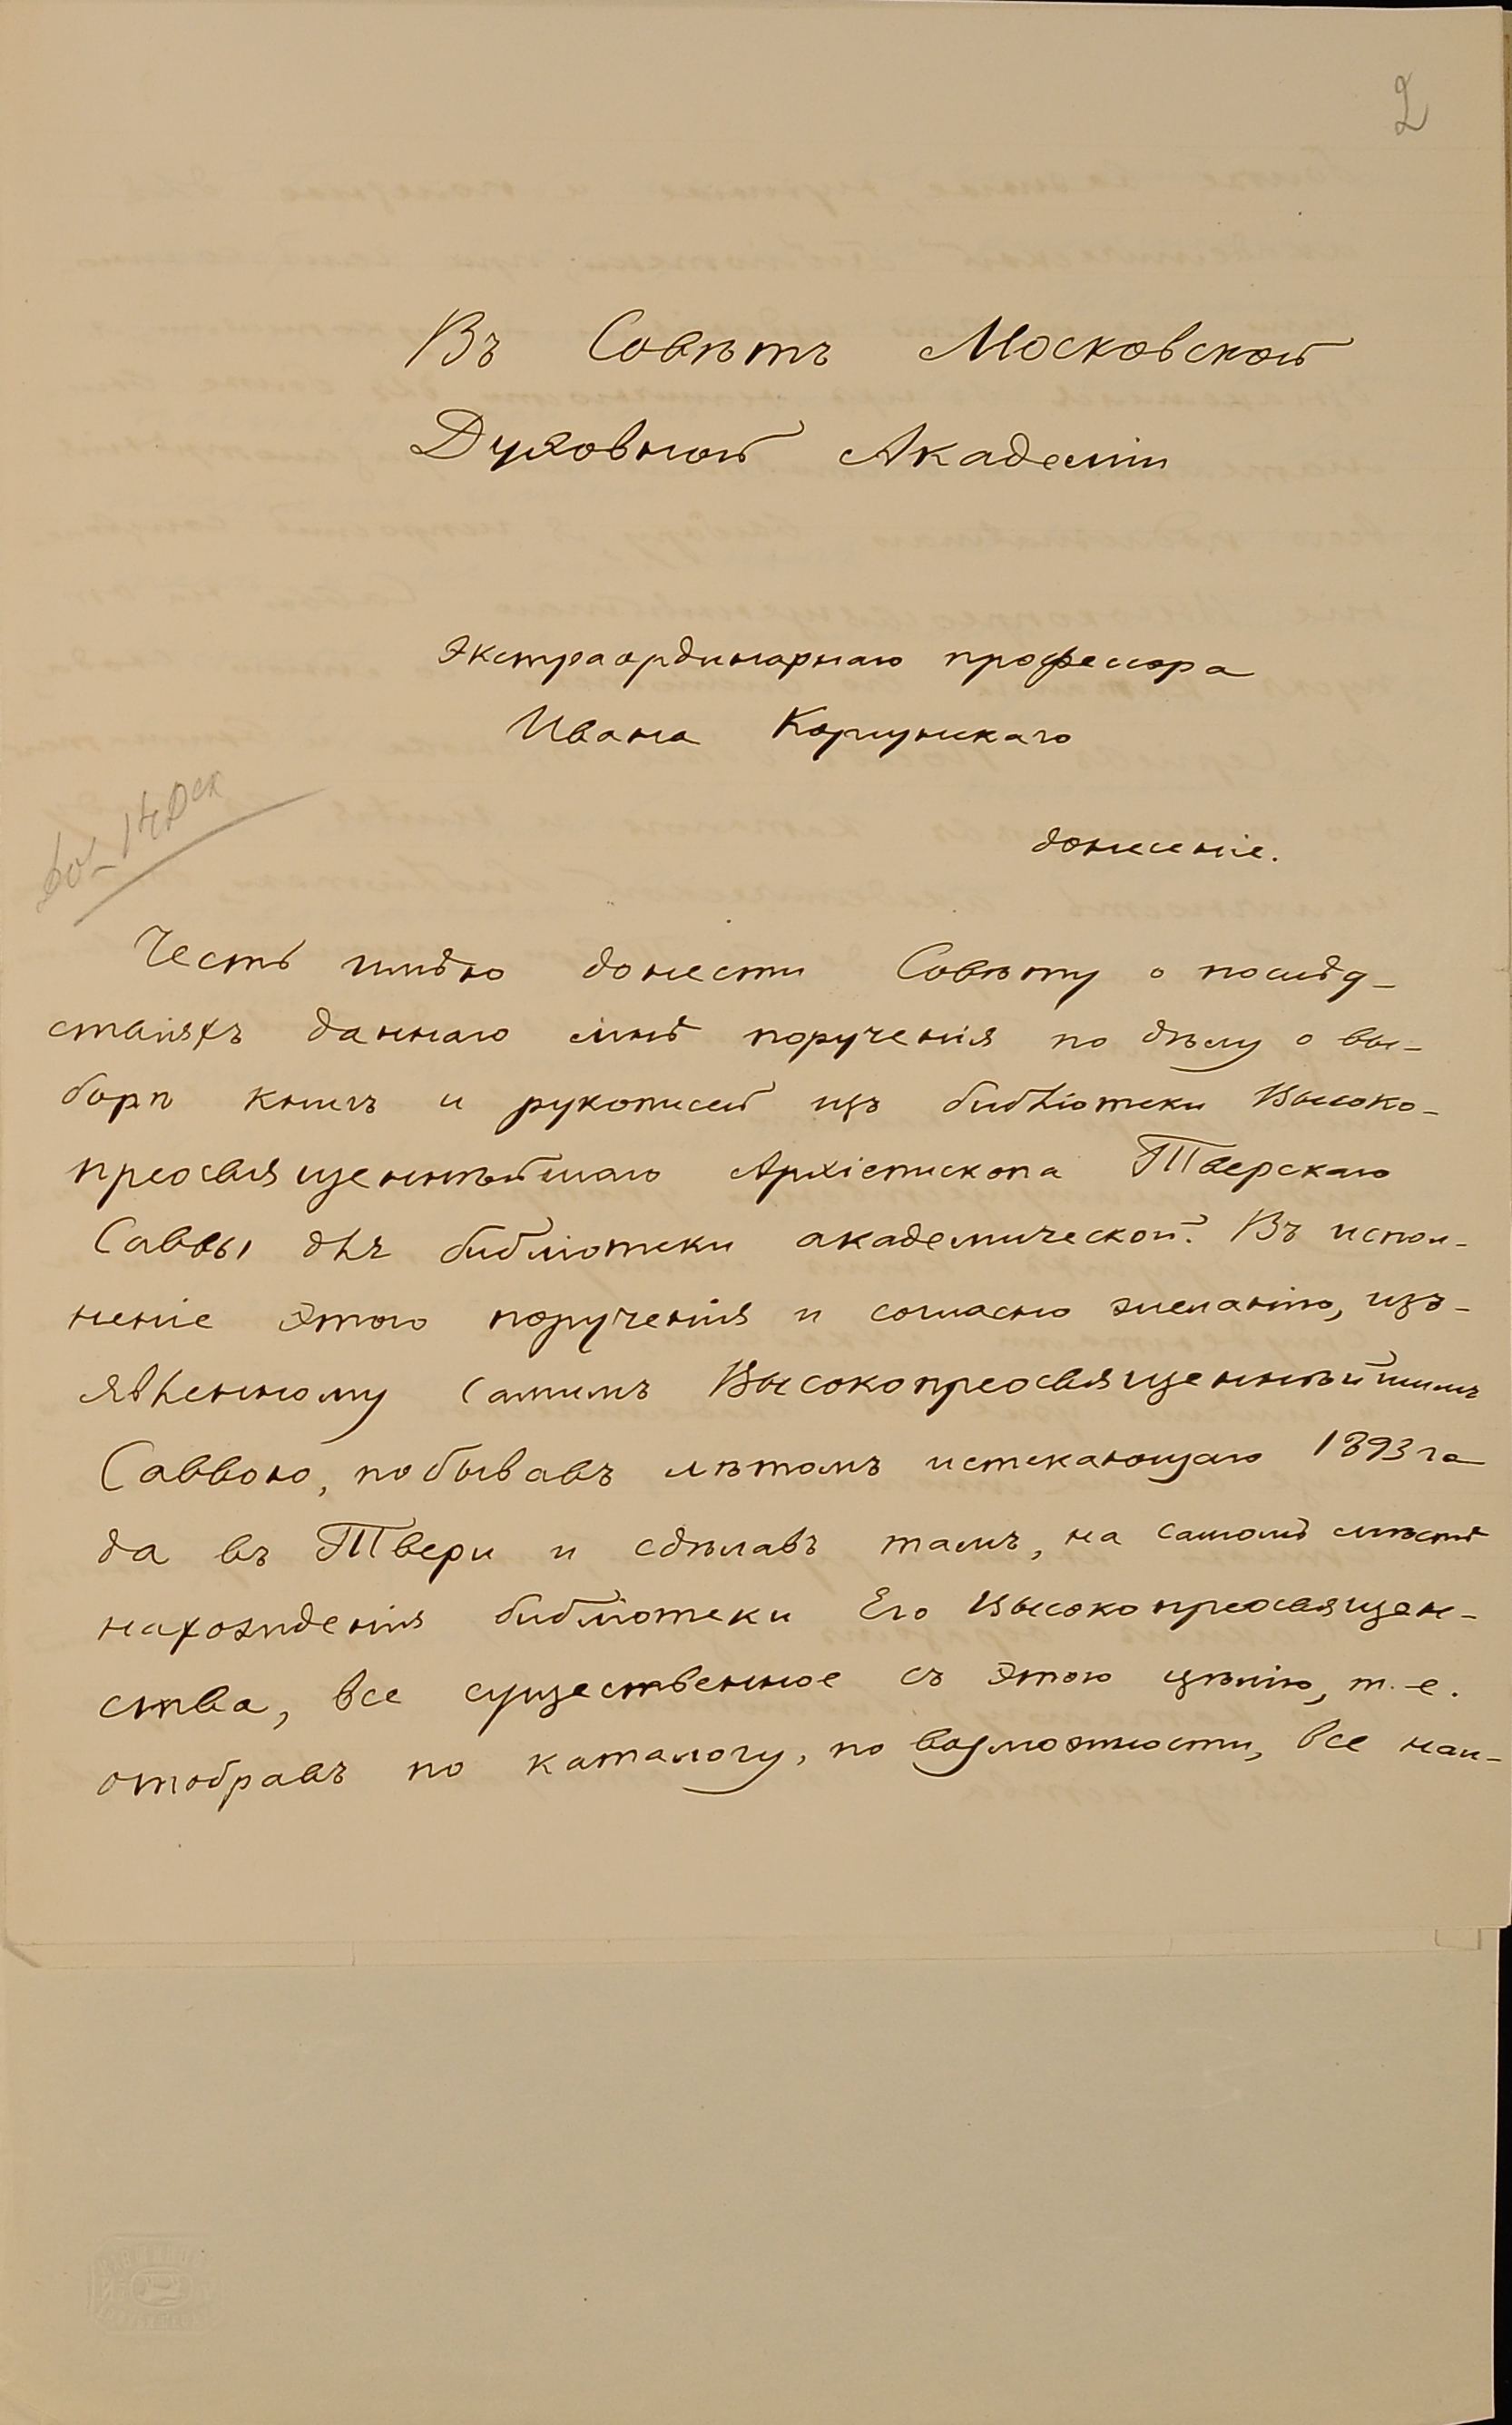 2
Въ Совѣтъ Московской
Духовной Академіи
Экстраординарнаго профессора
Ивана Корсунскаго
донесеніе.
Честь имѣю донести Совѣту о послѣд-
ствіяхъ даннаго мнѣ порученія по дѣлу о вы-
борѣ книгъ и рукописей изъ библіотеки Высоко-
преосвященнѣйшаго Архіепископа Тверскаго
Саввы для библіотеки академической. Въ испол-
неніе этого порученія и согласно желанію, изъ-
явленному самимъ Высокопреосвященнѣйшимъ
Саввою, побывавъ лѣтомъ истекающаго 1893 го-
да въ Твери и сдѣлавъ тамъ, на самомъ мѣстѣ
нахожденія библіотеки Его Высокопреосвящен-
ства, все существенное съ этою цѣлію, т.-е.
отобравъ по каталогу, по возможности, все наи-